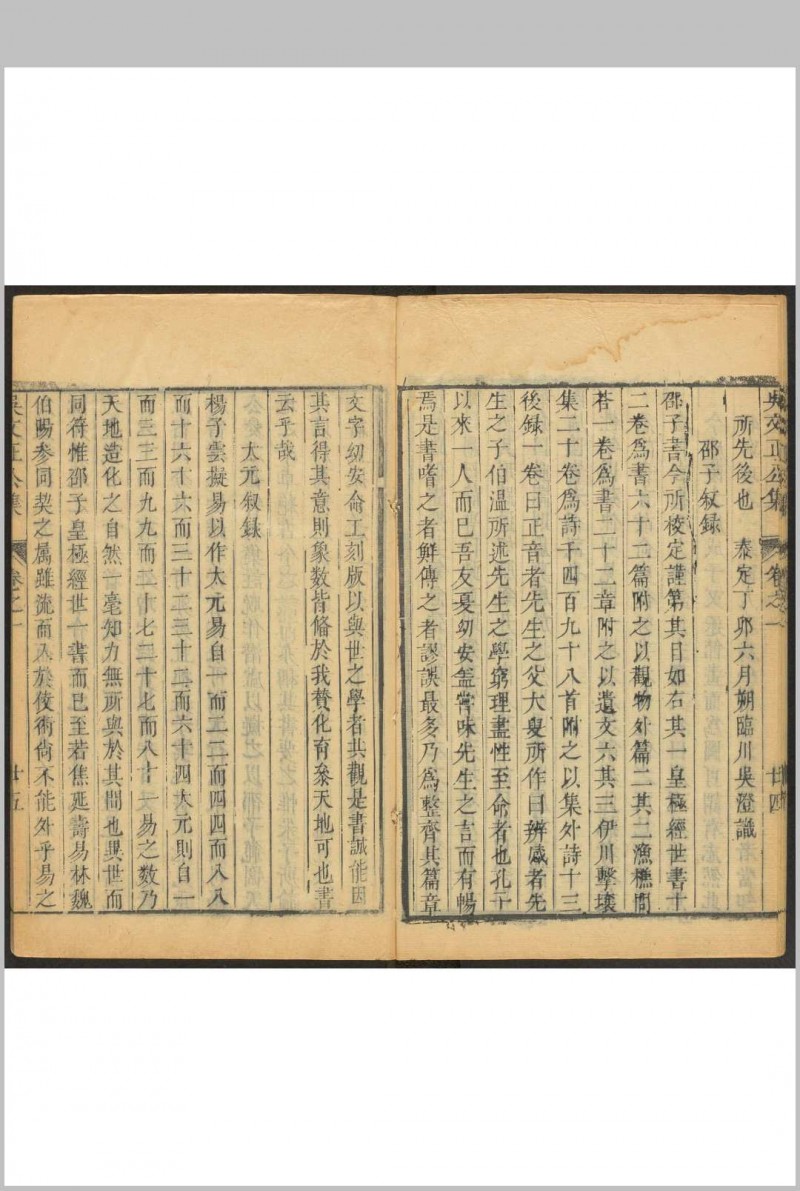 吳文正公集 卷之一 廿四
所先後也 泰定丁卯六月朔臨川吳澄識
邵子叙録
邵子書今所校定謹第其目如右其一皇極經世書十
二卷爲書六十二篇附之以觀物外篇二其二漁樵問
荅一卷爲書二十二章附之以遺文六其三伊川擊壤
集二十卷爲詩千四百九十八首附之以集外詩十三
後録一卷曰正音者先生之父大叟所作曰辨惑者先
生之子伯温所述先生之學窮理盡性至命者也孔子
以來一人而已吾友夏幼安盖嘗味先生之言而有暢
焉是書嗜之者鮮傳之者謬誤最多乃爲整齊其篇章
文字幼安命工刻版以與世之學者共觀是書誠能因
其言得其意則象數皆備於我賛化育叅天地可也書
云乎哉
太元叙録
楊子雲擬易以作太元易自一而二二而四四而八八
而十六十六而三十二三十二而六十四太元則自一
而三三而九九而二十七二十七而八十一易之數乃
天地造化之自然一毫知力無所與於其間也異世而
同符惟邵子皇極經世一書而已至若焦延壽易林魏
伯陽參同契之属雖流而入於伎術尚不能外乎易之
吳文正公集 卷之一 廿五